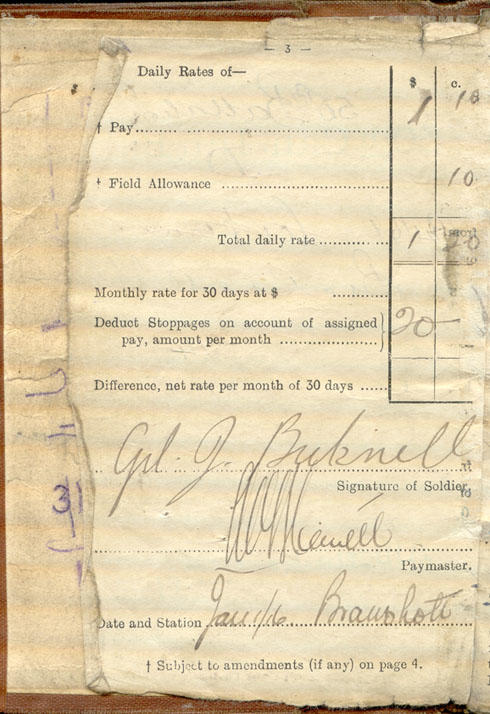 — 3 —
Daily Rates of—
$ c.
† Pay 1 10
† Field Allowance 10
Total daily rate 1 20
Monthly rate for 30 days at $
Deduct Stoppages on account of assigned
pay, amount per month 20 -
Difference, net rate per month of 30 days
Cpl. J. Bucknell
Signature of Soldier.
Paymaster.
Date and Station Jan 1/16 Bramshott
† Subject to amendments (if any) on page 4.